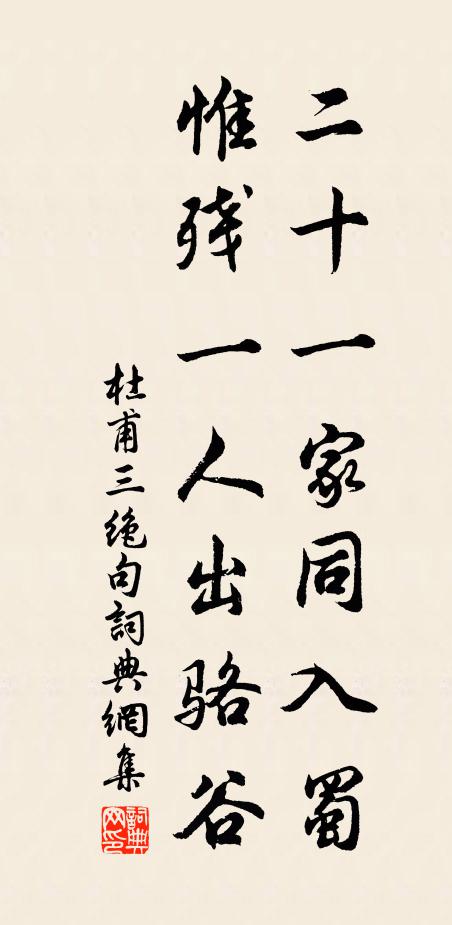 二十一家同入蜀
惟残一人出骆谷
杜甫三绝句詞典網集
詞典网印